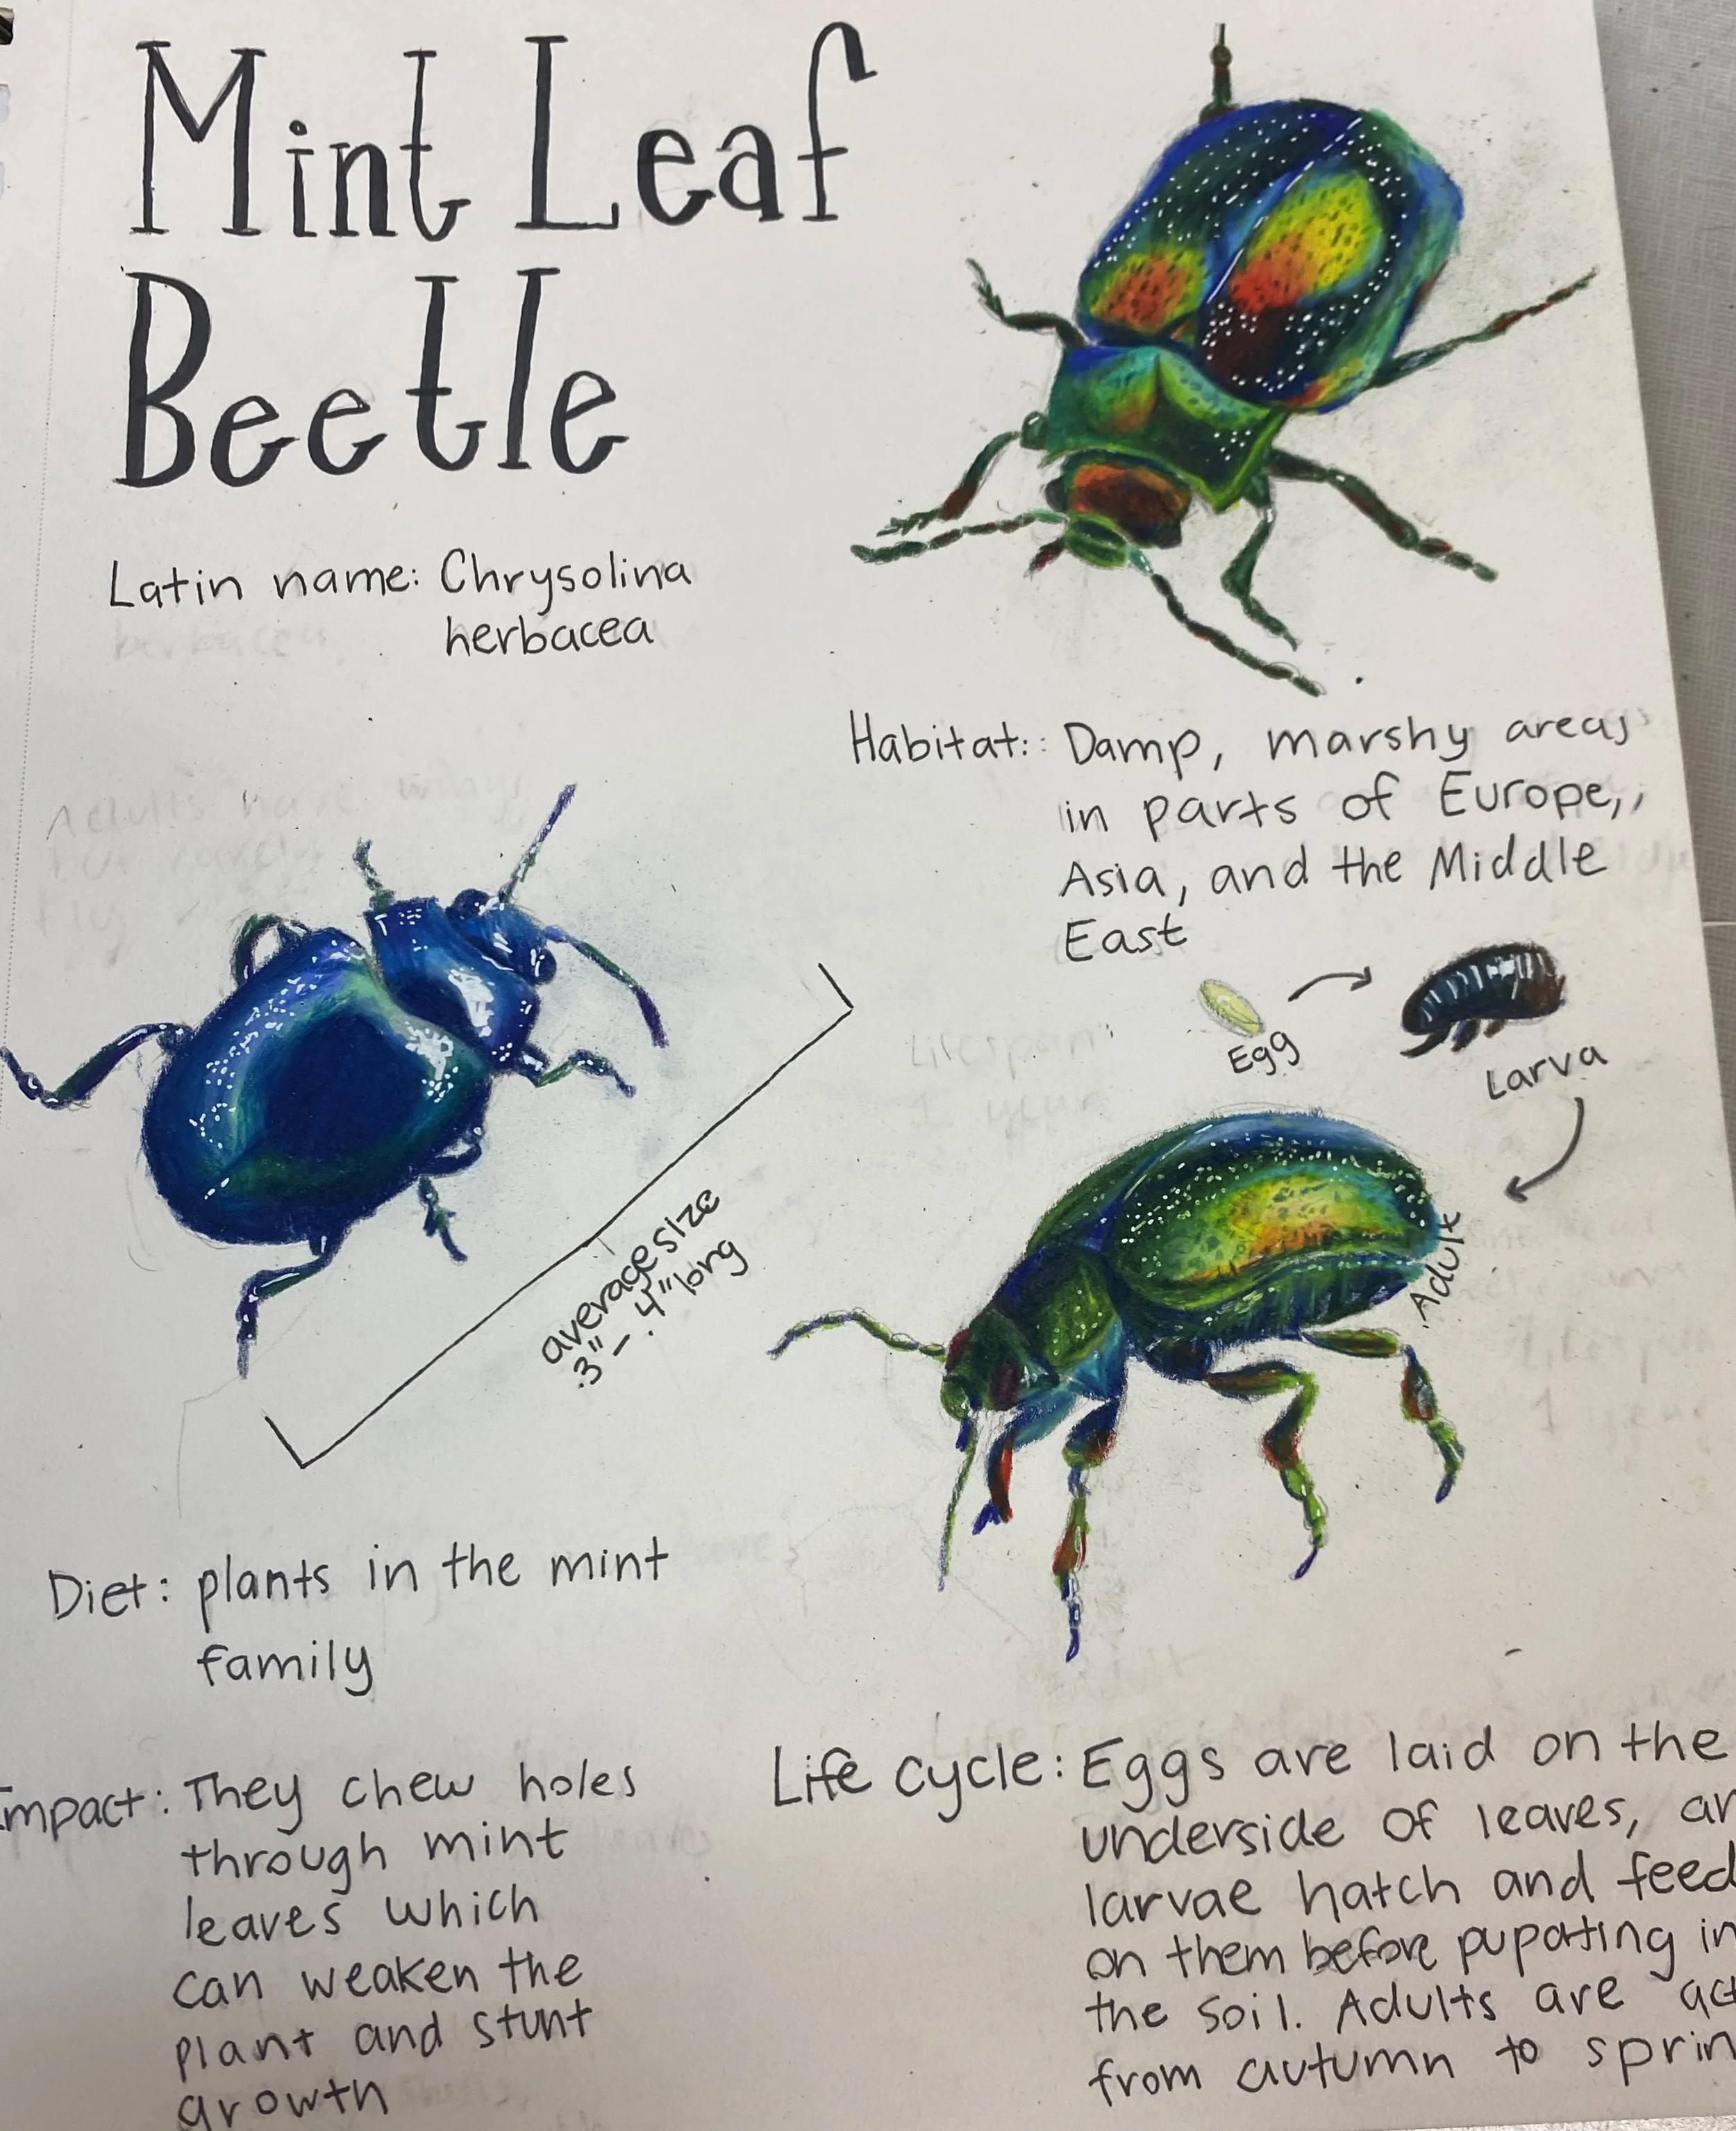 Mint Leaf
Beetle
Latin name: Chrysolina
herbacea
Habitat: Damp, marshy areas
in parts of Europe,
Asia, and the Middle
East
Egg
Larva
Adult
average size
.3" - .4" long
Diet: plants in the mint
family
Impact: They chew holes
through mint
leaves which
can weaken the
plant and stunt
growth
Life cycle: Eggs are laid on the
underside of leaves,
larvae hatch and feed
on them before pupating in
the soil. Adults are
from autumn to